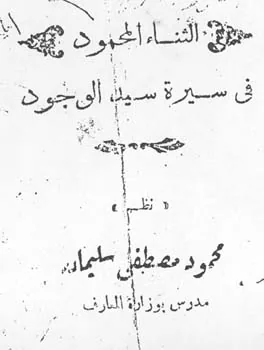 الثناء المحمود
فى سيرة سيد الوجود
« نظم »
محمود مصطفى سليمان
مدرس بوزارة المعارف